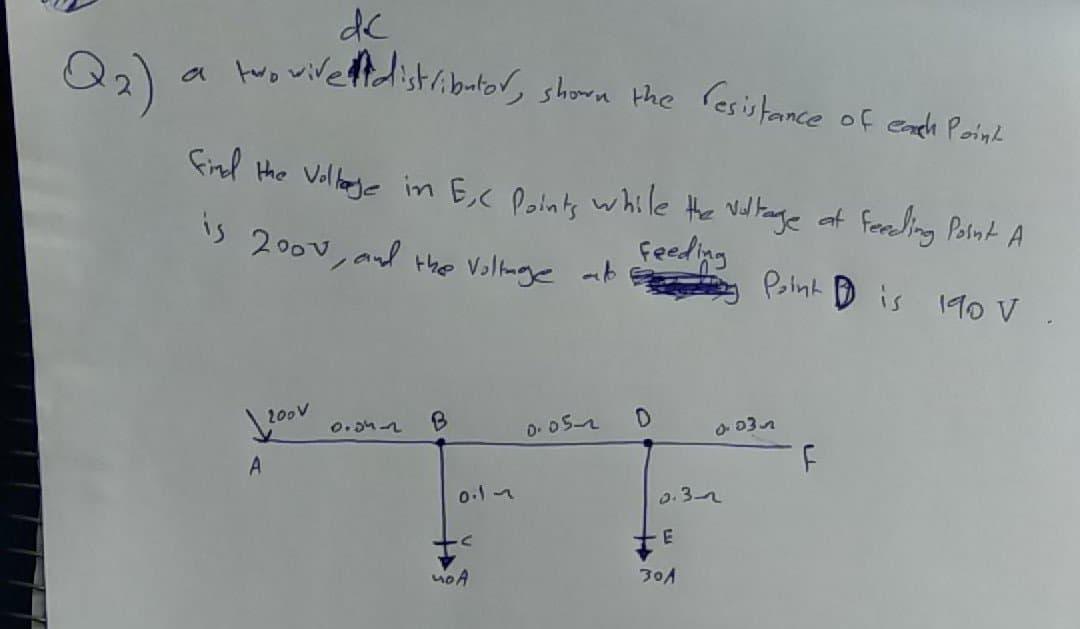 dc
Q2) a two wire distributor, shown the resistance of each Point
find the Voltage in E,C Points while the voltage at feeding Point A
is 200V, and the Voltage at feeding Point D is 190 V.
200V 0.04Ω B 0.05Ω D 0.03Ω
A F
0.1Ω 0.3Ω
C E
40A 30A